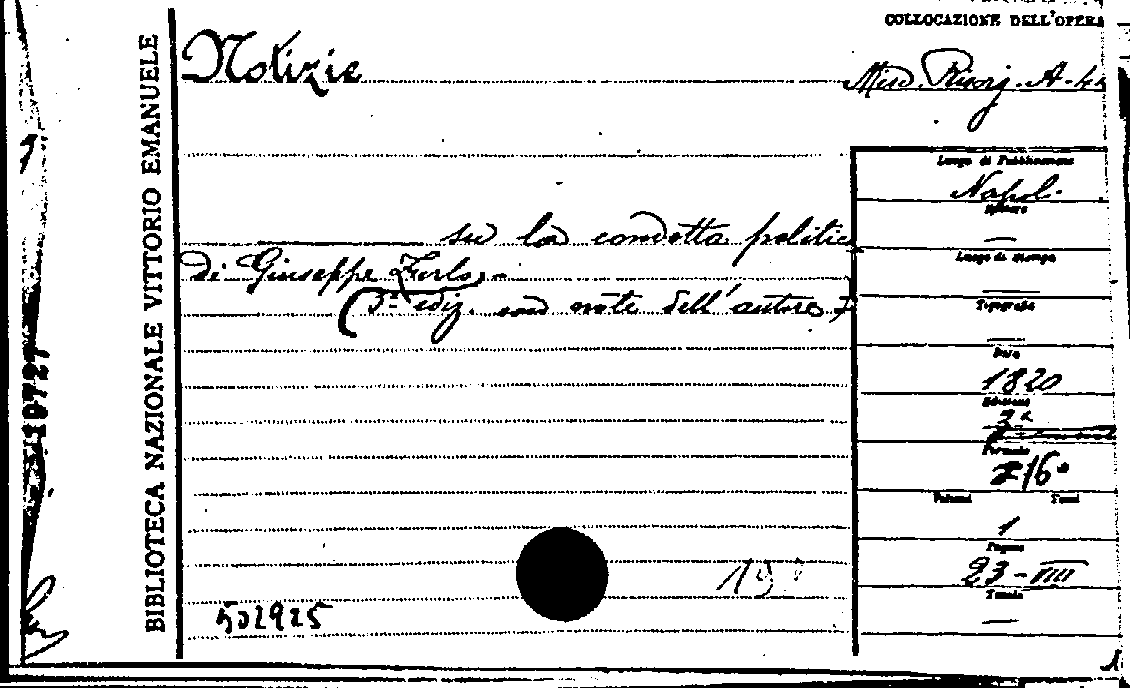 COLLOCAZIONE DELL'OPERA
Notizie
Misc. Risorg. A.
BIBLIOTECA NAZIONALE VITTORIO EMANUELE
su la condotta politica
di Giuseppe Zurlo.
(3ª ediz. con note dell'autore)
Luogo di Pubblicazione
Napoli
Editore
—
Luogo di stampa
—
Tipografo
—
Data
1820
Edizione
3ª
Formato
16°
Volumi Tomi
1
Pagine
23-VIII
Tavole
—
19
502925
10727